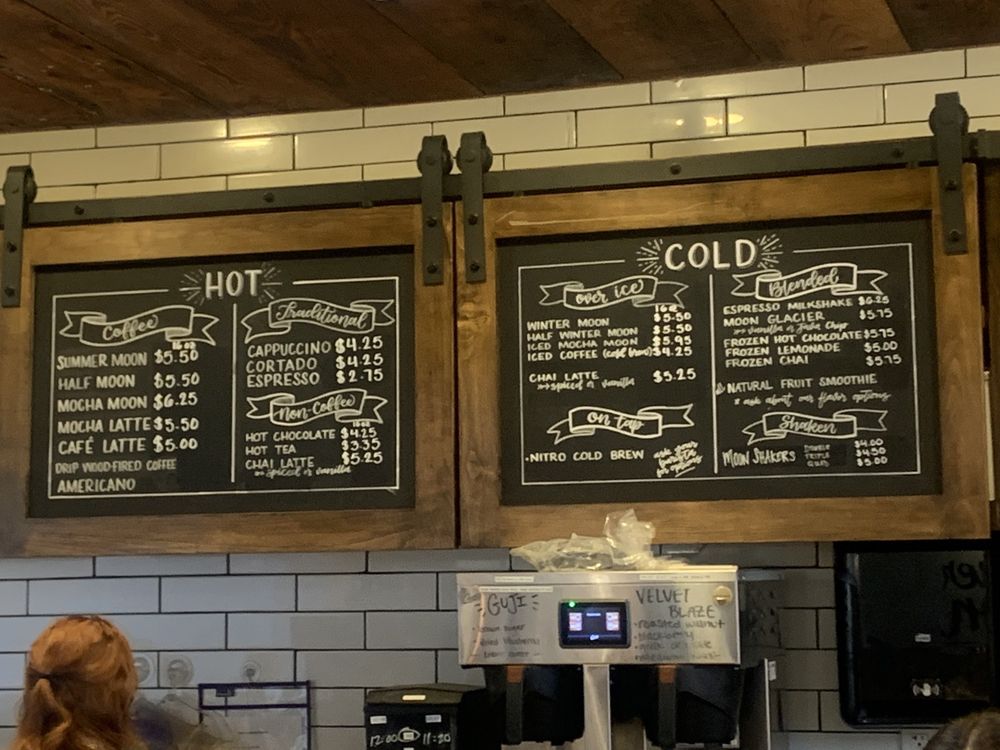 HOT
Coffee
16 oz
SUMMER MOON $5.50
HALF MOON $5.50
MOCHA MOON $6.25
MOCHA LATTE $5.50
CAFÉ LATTE $5.00
DRIP WOOD-FIRED COFFEE
AMERICANO
Traditional
CAPPUCCINO $4.25
CORTADO $4.25
ESPRESSO $2.75
Non-Coffee
16 oz
HOT CHOCOLATE $4.25
HOT TEA $3.35
CHAI LATTE $5.25
spiced or vanilla
COLD
over ice
16 oz
WINTER MOON $5.50
HALF WINTER MOON $5.50
ICED MOCHA MOON $5.95
ICED COFFEE (cold brew) $4.25
CHAI LATTE $5.25
spiced or vanilla
on tap
•NITRO COLD BREW
ask your
barista
for options
Blended
ESPRESSO MILKSHAKE $6.25
MOON GLACIER $5.75
vanilla or Java Chip
FROZEN HOT CHOCOLATE $5.75
FROZEN LEMONADE $5.00
FROZEN CHAI $5.75
NATURAL FRUIT SMOOTHIE
ask about our flavor options
Shaken
MOON SHAKERS
DOUBLE $4.00
TRIPLE $4.50
QUAD $5.00
GUJI
VELVET
BLAZE
•roasted walnut
12:00
11:20